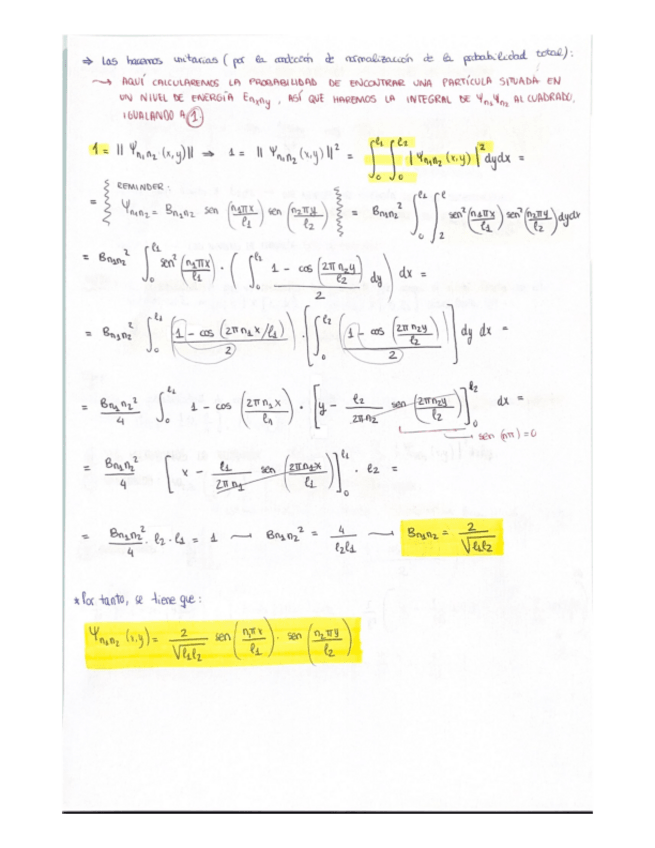 ⇒ Las hacemos unitarias (por la condición de normalización de la probabilidad total):
⟿ AQUÍ CALCULAREMOS LA PROBABILIDAD DE ENCONTRAR UNA PARTÍCULA SITUADA EN
UN NIVEL DE ENERGÍA En₁n₂, ASÍ QUE HAREMOS LA INTEGRAL DE Ψn₁Ψn₂ AL CUADRADO,
IGUALANDO A 1.
1 = || Ψn₁n₂ (x,y)|| ⇒ 1 = || Ψn₁n₂ (x,y) ||² = ∫₀^ℓ₁ ∫₀^ℓ₂ |Ψn₁n₂ (x,y)|² dydx =
= { REMINDER: Ψn₁n₂ = Bn₁n₂ sen (n₁πx/ℓ₁) sen (n₂πy/ℓ₂) } = Bn₁n₂² ∫₀^ℓ₁ ∫₂^ℓ sen² (n₁πx/ℓ₁) sen² (n₂πy/ℓ₂) dydx
= Bn₁n₂² ∫₀^ℓ₁ sen² (n₁πx/ℓ₁) · ( ∫₀^ℓ₂ (1 - cos (2πn₂y/ℓ₂))/2 dy ) dx =
= Bn₁n₂² ∫₀^ℓ₁ (1 - cos (2πn₁x/ℓ₁))/2 · [ ∫₀^ℓ₂ (1 - cos (2πn₂y/ℓ₂))/2 ] dy dx =
= Bn₁n₂²/4 ∫₀^ℓ₁ 1 - cos (2πn₁x/ℓ₁) · [ y - ℓ₂/2πn₂ sen (2πn₂y/ℓ₂) ]₀^ℓ₂ dx =
sen (nπ) = 0
= Bn₁n₂²/4 [ x - ℓ₁/2πn₁ sen (2πn₁x/ℓ₁) ]₀^ℓ₁ · ℓ₂ =
= Bn₁n₂²/4 · ℓ₂ · ℓ₁ = 1 ⟶ Bn₁n₂² = 4/ℓ₂ℓ₁ ⟶ Bn₁n₂ = 2/√ℓ₁ℓ₂
* Por tanto, se tiene que:
Ψn₁n₂ (x,y) = 2/√ℓ₁ℓ₂ sen (n₁πx/ℓ₁) · sen (n₂πy/ℓ₂)